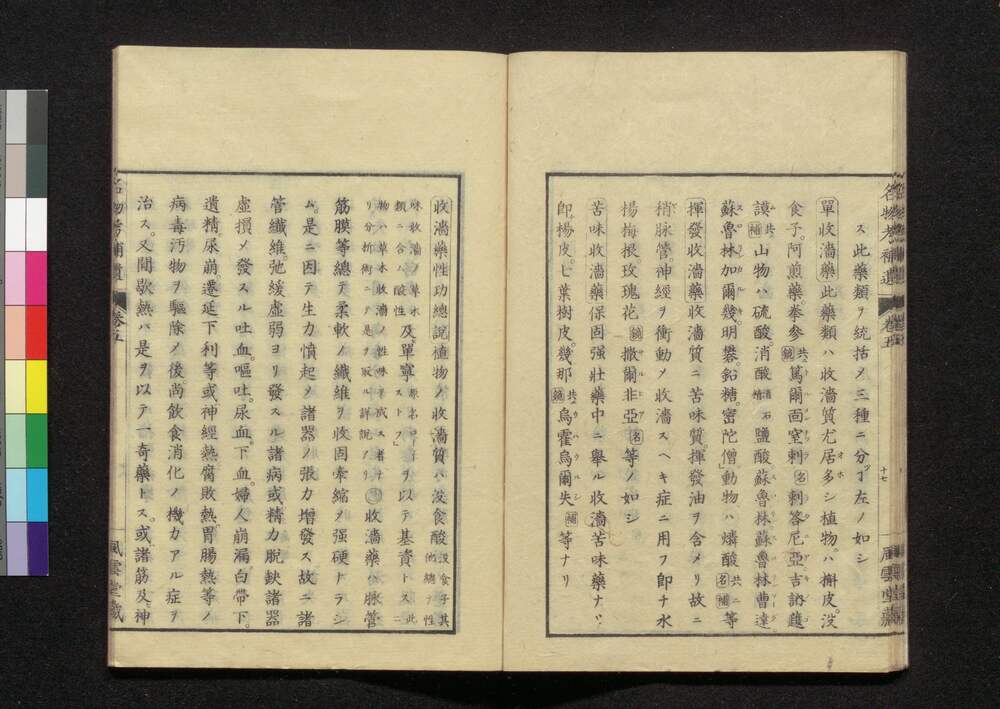 ス此藥類ヲ統括メ三種ニ分ツ丁左ノ如シ
單收濇藥此藥類ハ收濇質尤居多シ植物ハ槲皮。沒
食子。阿煎藥。拳參共ニ鏡篤爾面室刺名刺答尼亞
謨共ニ補山物ハ硫酸。消酸鹽酸。蘇魯林蘇魯林曹達
蘇魯林加爾幾明礬。鉛糖。密陀僧」動物ハ燐酸共ニ名補等
揮發收濇藥收濇質ニ苦味質揮發油ヲ含メリ故ニ
稍脉管。神經ヲ衝動メ收濇スヘキ症ニ用フ卽チ水
楊梅根玫瑰花鏡撒爾非亞名等ノ如シ
苦味收濇藥保固强壯藥中ニ舉ル收濇苦味藥ナリ
卽楊皮。七葉樹皮。幾那共ニ鏡烏霍烏爾失補等ナリ
名物考補遺 卷五 十七 風雲堂藏
收濇藥性功總說植物ノ收濇質ハ沒食酸沒食子其他總テ性
味收濇ノ草木此類ニ含ハ酸性及單寧ヲ以テ基資トス此ニ
物ハ草木收濇ノ性味ヲ成ス者ナリ分析術ニテ是ヲ取ル詳說アリ收濇藥ハ脉管
筋膜等總テ柔軟ノ纖維ヲ收固牽縮メ强硬ナラシ
ム。是ニ因テ生力憤起メ諸器ノ張力增發ス故ニ諸
管纖維。弛緩虛弱ヨリ發スル諸病或精力脫缺諸器
虛損メ發スル吐血。嘔吐。尿血。下血。婦人崩漏白帶下。
遺精。尿崩。遷延下利等或神經熱腐敗熱。胃腸熱等ノ
病毒汚物ヲ驅除メ後尚飮食消化ノ機力アル症ヲ
治ス。又間歇熱ハ是ヲ以テ一奇藥トス。或諸筋及神
名物考補遺 卷五 風雲堂藏